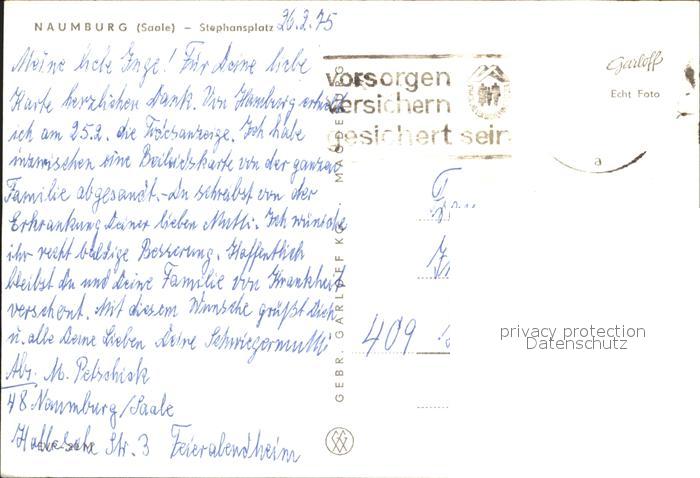 NAUMBURG (Saale) – Stephansplatz 26.2.75
Meine liebe Inge! Für Deine liebe
Karte herzlichen Dank. Von Hamburg erhielt
ich am 25.2. die Todesanzeige. Ich habe
inzwischen eine Beileidskarte von der ganzen
Familie abgesandt. – Du schreibst von der
Erkrankung Deiner lieben Mutti. Ich wünsche
ihr recht baldige Besserung. Hoffentlich
bleibst Du und Deine Familie von Krankheit
verschont. Mit diesem Wunsche grüßt Dich
u. alle Deine Lieben Deine Schwiegermutti
Abs. M. Petschick
48 Naumburg/Saale
Str. 3 Feierabendheim
GEBR. GARLOFF KG, MAGDEBURG
vorsorgen
versichern
gesichert sein
a
Garloff
Echt Foto
409
privacy protection
Datenschutz